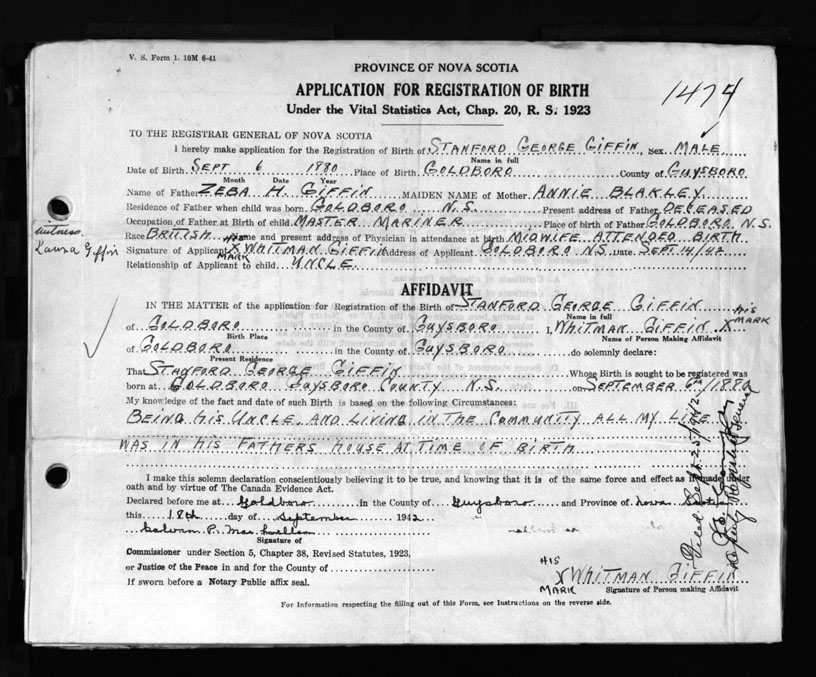 V. S. Form 1. 10M 6-41
PROVINCE OF NOVA SCOTIA
APPLICATION FOR REGISTRATION OF BIRTH
1474
Under the Vital Statistics Act, Chap. 20, R. S. 1923
TO THE REGISTRAR GENERAL OF NOVA SCOTIA
I hereby make application for the Registration of Birth of STANFORD GEORGE GIFFIN, Sex MALE
Name in full
Date of Birth SEPT 6 1880 Place of Birth GOLDBORO County of GUYSBORO
Month Date Year
Name of Father ZEBA H. GIFFIN MAIDEN NAME of Mother ANNIE BLAKLEY
Residence of Father when child was born GOLDBORO N.S. Present address of Father DECEASED
Occupation of Father at Birth of child MASTER MARINER Place of birth of Father GOLDBORO N.S.
witness.
Laura Giffin
Race BRITISH Name and present address of Physician in attendance at birth MIDWIFE ATTENDED BIRTH
Signature of Applicant HIS X MARK WHITMAN GIFFIN Address of Applicant GOLDBORO N.S. Date SEPT. 14/42
Relationship of Applicant to child UNCLE
AFFIDAVIT
IN THE MATTER of the application for Registration of the Birth of STANFORD GEORGE GIFFIN
Name in full
of GOLDBORO in the County of GUYSBORO I, WHITMAN GIFFIN X his MARK
Birth Place Name of Person Making Affidavit
of GOLDBORO in the County of GUYSBORO do solemnly declare:
Present Residence
That STANFORD GEORGE GIFFIN Whose Birth is sought to be registered was
born at GOLDBORO GUYSBORO COUNTY N.S. on SEPTEMBER 6TH/1880
My knowledge of the fact and date of such Birth is based on the following Circumstances:
BEING HIS UNCLE AND LIVING IN THE COMMUNITY ALL MY LIFE
WAS IN HIS FATHERS HOUSE AT TIME OF BIRTH
I make this solemn declaration conscientiously believing it to be true, and knowing that it is of the same force and effect as if made under
oath and by virtue of The Canada Evidence Act.
Declared before me at Goldboro in the County of Guysboro and Province of Nova Scotia
this 18th day of September 1942
Signature of
Commissioner under Section 5, Chapter 38, Revised Statutes, 1923,
or Justice of the Peace in and for the County of
If sworn before a Notary Public affix seal.
HIS X MARK WHITMAN GIFFIN
Signature of Person making Affidavit
For Information respecting the filling out of this Form, see Instructions on the reverse side.
Filed Sept. 25/1942
Deputy Registrar General